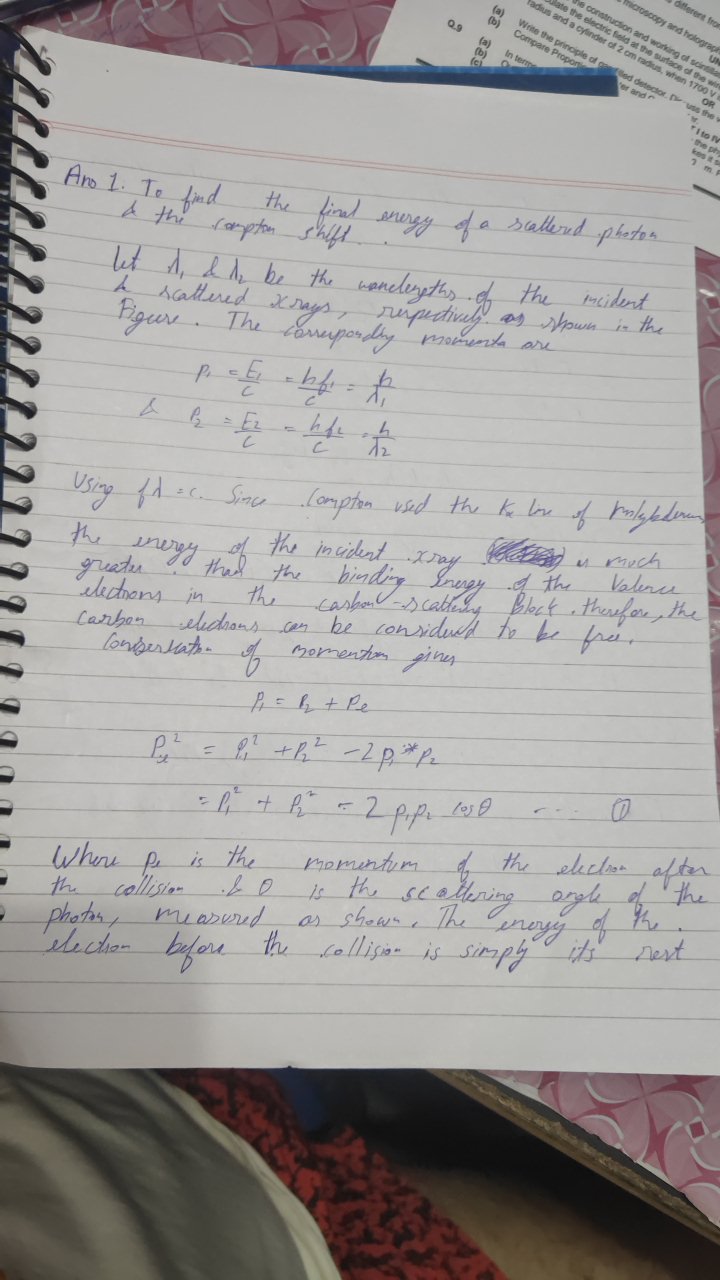 (a)
(b)
the construction and working of scintill
microscopy and holograp
radius and a cylinder of 2 cm radius, when 1700 V
Q.9
(a)
(b)
(c)
Write the principle of
filled detector.
Compare Proport
OR
In terms
Ans 1. To find the final energy of a scattered photon
& the compton shift.
Let λ₁ & λ₂ be the wavelengths of the incident
& scattered x rays, respectively as shown in the
Figure. The corresponding momenta are
P₁ = E₁/c = hf₁/c = h/λ₁
& P₂ = E₂/c = hf₂/c = h/λ₂
Using fλ = c. Since Compton used the Kα line of molybdenum
the energy of the incident xray is much
greater than the binding energy of the valence
electrons in the carbon-scattering Block. therefore, the
carbon electrons can be considered to be free.
Conservation of momentum gives
P₁ = P₂ + Pe
Pe² = P₁² + P₂² - 2 p₁ * p₂
= P₁² + P₂² - 2 p₁p₂ cosθ ---- ①
Where pe is the momentum of the electron after
the collision & θ is the scattering angle of the
photon, measured as shown. The energy of the
electron before the collision is simply its rest